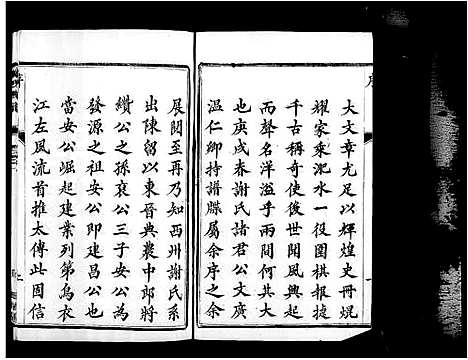 大文章允足以輝煌史冊焜
耀家乘淝水一役圍棋報捷
千古稱奇使後世聞風興起
而聲名洋溢乎兩間何其大
也庚戌春謝氏諸君公文廣
溫仁卿持譜牒屬余序之余
展閱至再乃知西州謝氏系
出陳留以東晉典農中郎將
纘公之孫裒公三子安公為
發源之祖安公即建昌公也
當安公崛起建業列第烏衣
江左風流首推太傅此固信